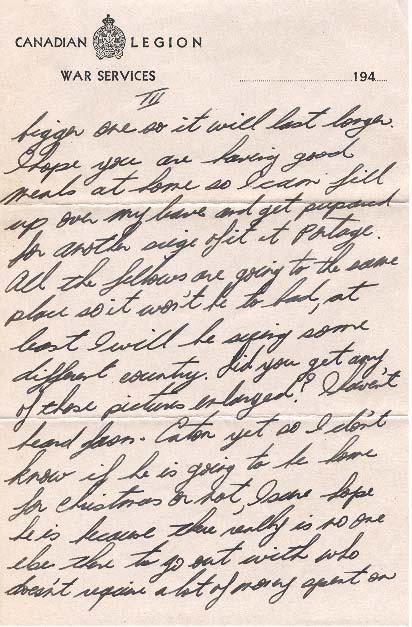 CANADIAN LEGION
WAR SERVICES
194
III
bigger one so it will last longer.
I hope you are having good
meals at home so I can fill
up over my leave and get prepared
for another seige of it at Portage.
All the fellows are going to the same
place so it won't be to bad, at
least I will be seeing some
different country. Did you get any
of those pictures enlarged? I haven't
heard from Eaton yet so I don't
know if he is going to be home
for Christmas or not, I sure hope
he is because there really is no one
else there to go out with who
doesn't require a lot of money spent on